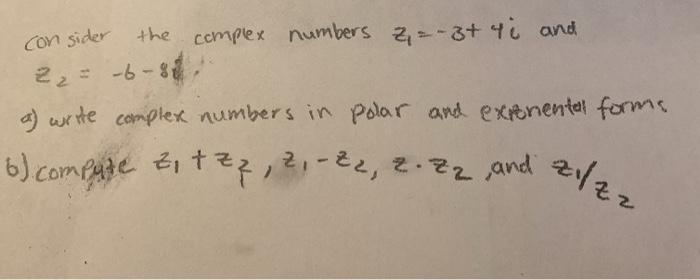 consider the complex numbers z₁ = -3 + 4i and
z₂ = -6 - 8i.
a) write complex numbers in polar and exponental forms
b) compute z₁ + z₂, z₁ - z₂, z · z₂, and z₁/z₂